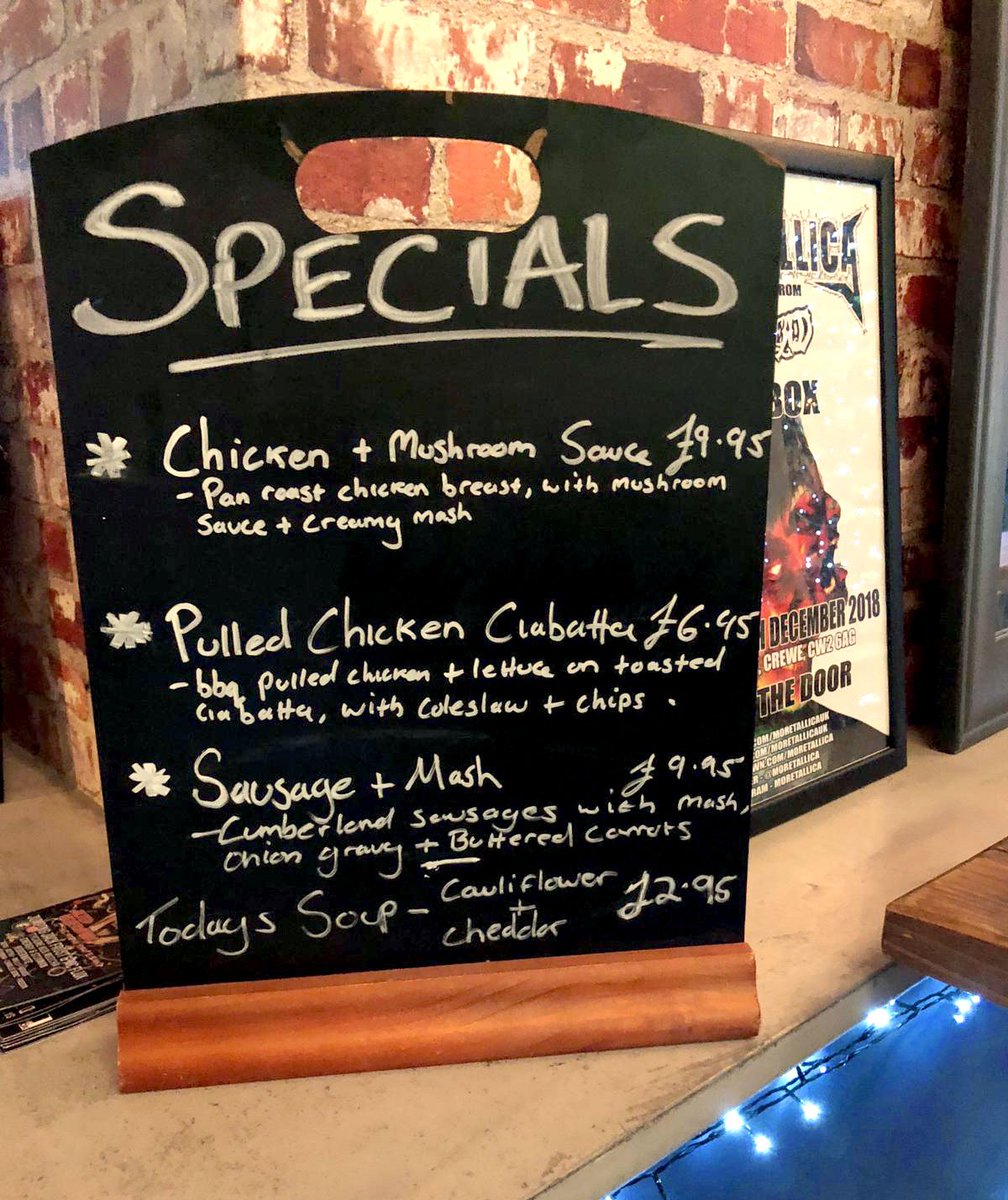 SPECIALS
Chicken + Mushroom Sauce £9.95
- Pan roast chicken breast, with mushroom
Sauce + Creamy mash
Pulled Chicken Ciabatta £6.95
- bbq pulled chicken + lettuce on toasted
Ciabatta, with coleslaw + chips.
Sausage + Mash £9.95
- Cumberland sausages with mash,
Onion gravy + Buttered Carrots
Todays Soup - Cauliflower
+
cheddar £2.95
LLICA
ROM
BOX
DECEMBER 2018
CREWE, CW2 6AG
THE DOOR
COM/MORETALLICAUK
COM/MORETALLICAUK
WN.COM/MORETALLICA
R - @MORETALLICA
RAM - MORETALLICA